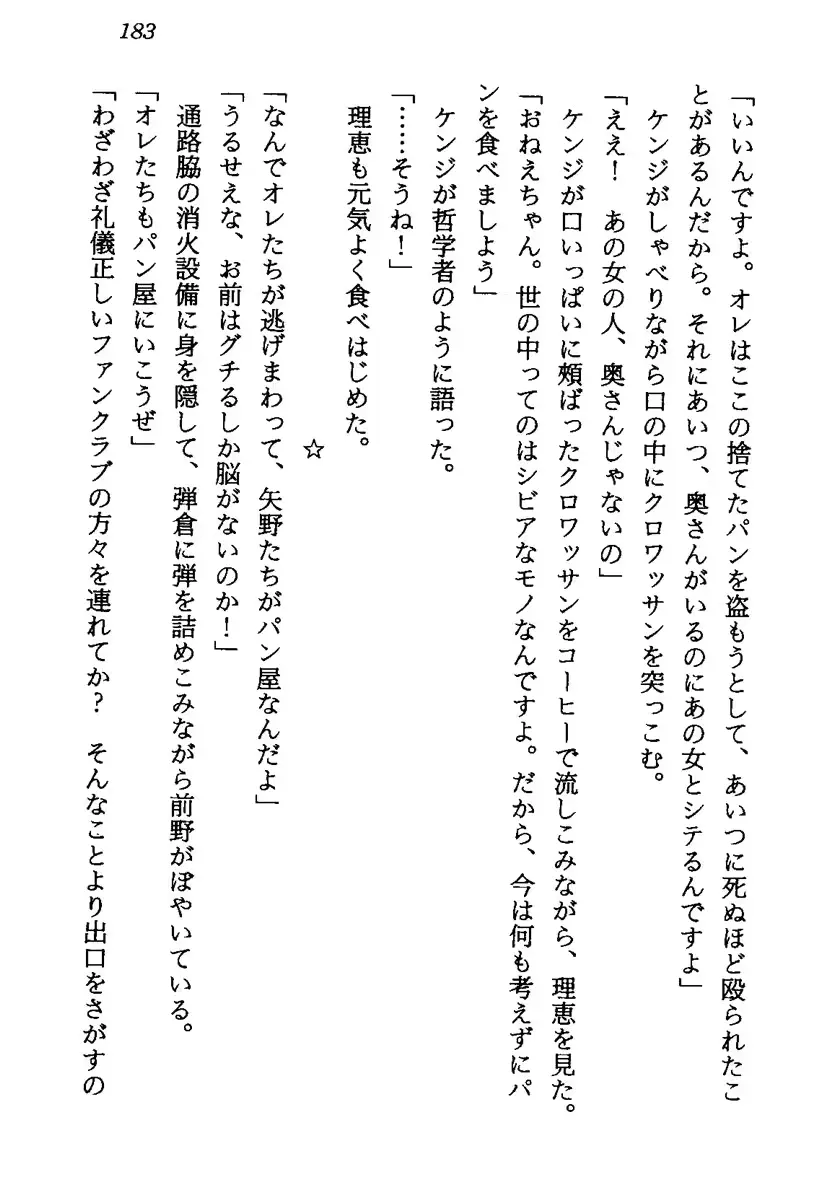 183
「いいんですよ。オレはここの捨てたパンを盗もうとして、あいつに死ぬほど殴られたこ
とがあるんだから。それにあいつ、奥さんがいるのにあの女とシテるんですよ」
　ケンジがしゃべりながら口の中にクロワッサンを突っこむ。
「ええ！　あの女の人、奥さんじゃないの」
　ケンジが口いっぱいに頰ばったクロワッサンをコーヒーで流しこみながら、理恵を見た。
「おねえちゃん。世の中ってのはシビアなモノなんですよ。だから、今は何も考えずにパ
ンを食べましよう」
　ケンジが哲学者のように語った。
「……そうね！」
　理恵も元気よく食べはじめた。
☆
「なんでオレたちが逃げまわって、矢野たちがパン屋なんだよ」
「うるせえな、お前はグチるしか脳がないのか！」
　通路脇の消火設備に身を隠して、弾倉に弾を詰めこみながら前野がぼやいている。
「オレたちもパン屋にいこうぜ」
「わざわざ礼儀正しいファンクラブの方々を連れてか？　そんなことより出口をさがすの